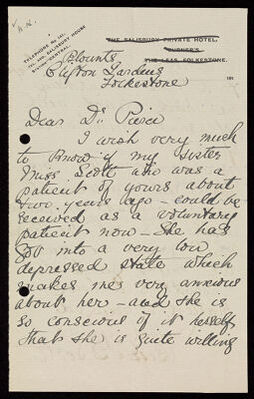 THE SALISBURY PRIVATE HOTEL,
THE LEAS, FOLKESTONE.
Blounts
Clifton Gardens
Folkestone
191
Dear Dr. Pierce
I wish very much
to know if my sister
Miss Scott who was a
patient of yours about
two years ago - could be
received as a voluntary
patient now - She has
got into a very low
depressed state which
makes me very anxious
about her - and she is
so conscious of it herself
that she is quite willing